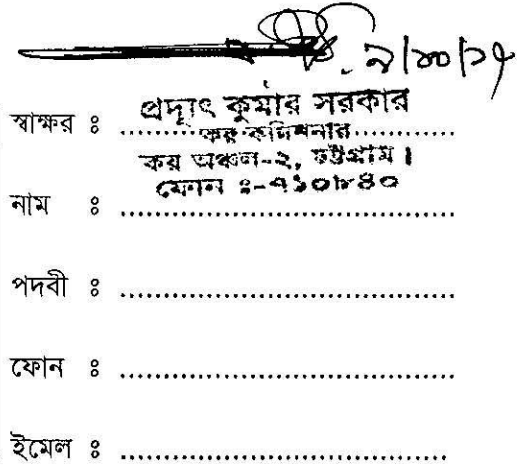 স্বাক্ষর ঃ ........................................
প্রদ্যুৎ কুমার সরকার
কর কমিশনার
কর অঞ্চল-২, চট্টগ্রাম।
ফোন ঃ-৭১০৮৪০
নাম ঃ ........................................
পদবী ঃ ........................................
ফোন ঃ ........................................
ইমেল ঃ ........................................